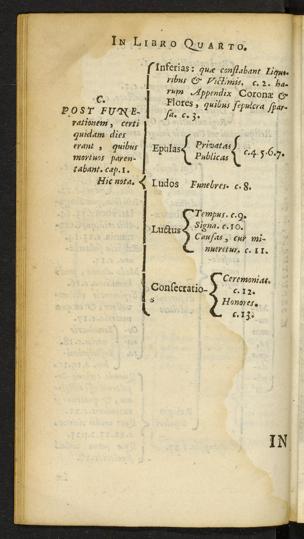 IN LIBRO QUARTO.
C.
POST FUNE-
rationem, certi
quidam dies
erant, quibus
mortuos paren-
tabant. cap. 1.
Hic nota.
Inferias: quæ constabant Liquo-
ribus & Victimis. c. 2. ha-
rum Appendix Coronæ &
Flores, quibus sepulcra spar-
sa. c. 3.
Epulas
Privatas
Publicas
c. 4. 5. 6. 7.
Ludos Funebres. c. 8.
Luctus
Tempus. c. 9.
Signa. c. 10.
Causas, cur mi-
nueretur. c. 11.
Consecratio-
s
Ceremonias.
c. 12.
Honores.
c. 13.
IN